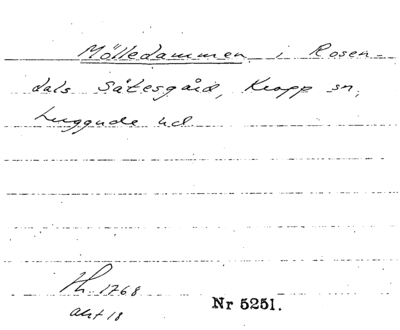 Mölledammen i Rosen-
dals Sätesgård, Kropp sn,
Luggude hd
Th. 1768
akt 18
Nr 5251.